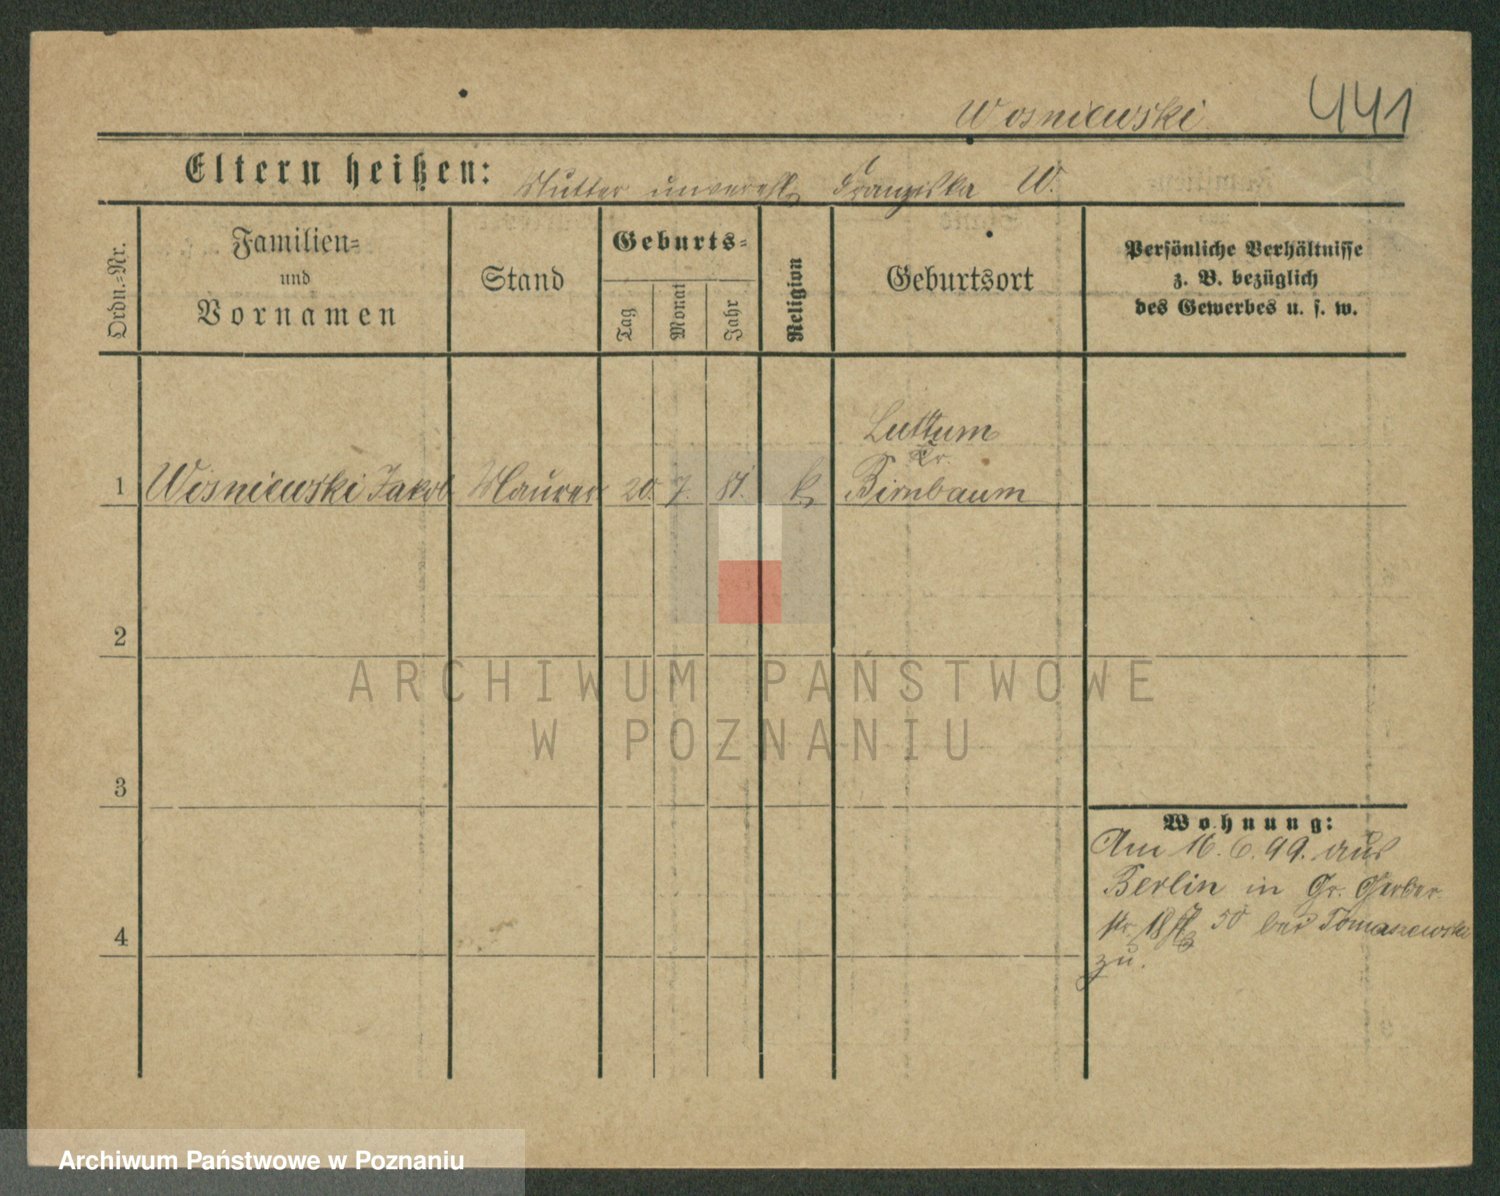 Wosniewski
441
Eltern heißen: Mutter unverehl. Franziska W.
Ordn.-Nr.
Familien-
und
Vornamen
Stand
Geburts-
Tag
Monat
Jahr
Religion
Geburtsort
Persönliche Verhältnisse
z. B. bezüglich
des Gewerbes u. s. w.
Luttum
Kr.
1 Wosniewski Jakob Maurer 20. 7. 81. k. Birnbaum
2
3
4
Wohnung:
Am 16. 6. 99. aus
Berlin in Gr. Gerber
str. 50 bei Tomaszewski
zu.
ARCHIWUM PAŃSTWOWE
W POZNANIU
Archiwum Państwowe w Poznaniu